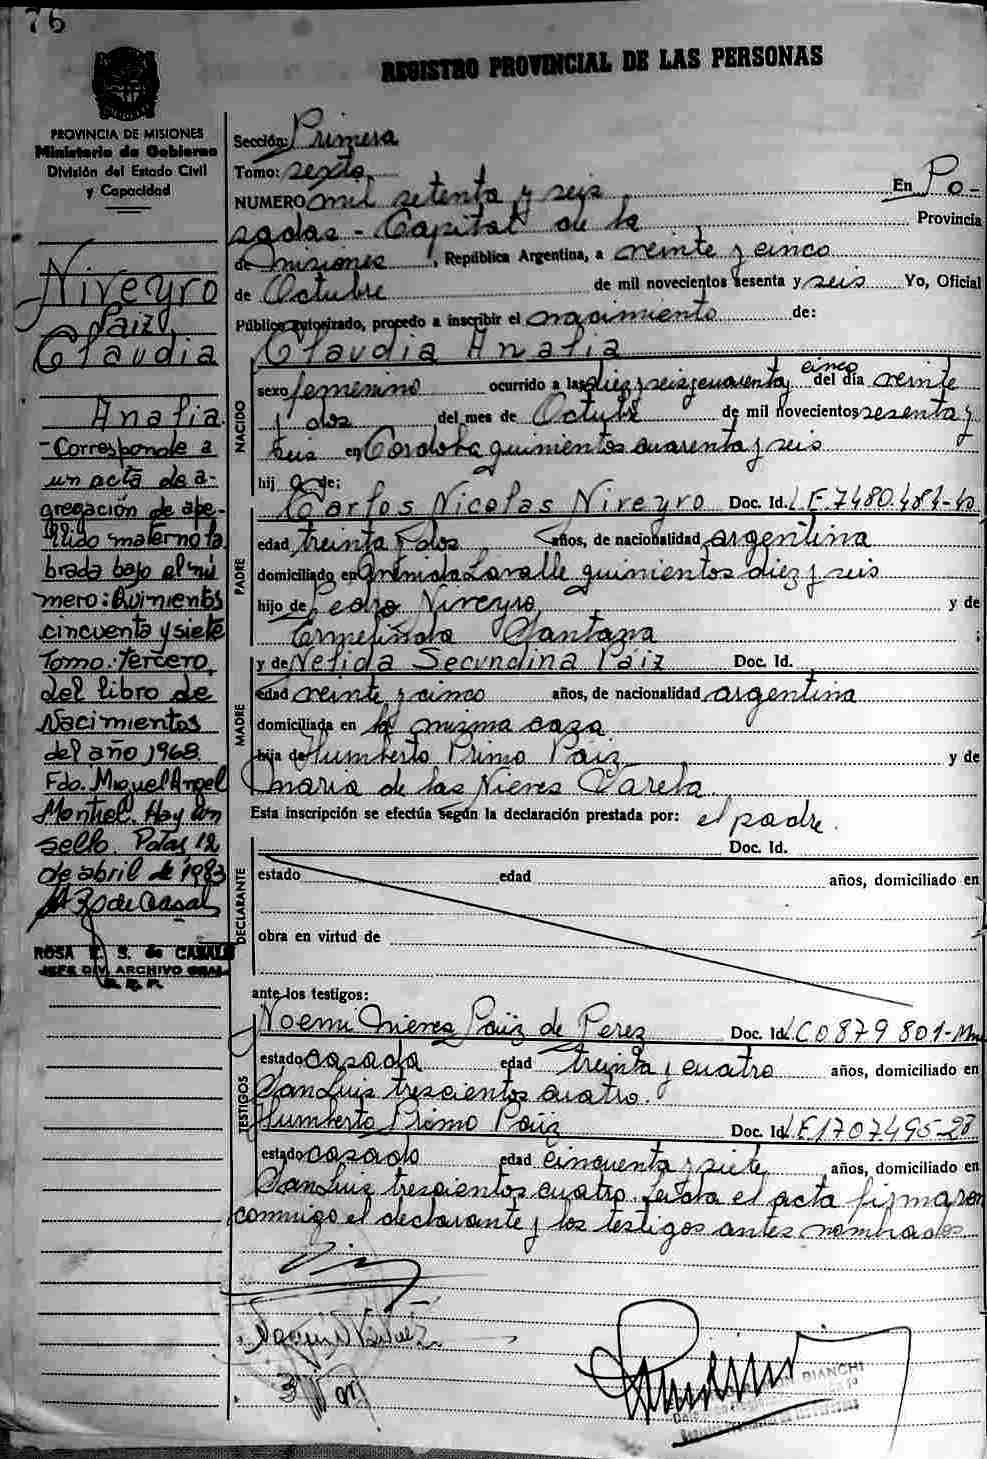 76
REGISTRO PROVINCIAL DE LAS PERSONAS
PROVINCIA DE MISIONES
Ministerio de Gobierno
División del Estado Civil
y Capacidad
Niveyro
Paiz,
Claudia
Analia.
- Corresponde a
un acta de a-
gregación de ape-
llido materno la
brada bajo el nú
mero: Quinientos
cincuenta y siete
Tomo: Tercero,
del libro de
Nacimientos
del año 1968.
Fdo. Miguel Angel
Montiel. Hay un
sello. Pdas, 12
de abril de 1983
ROSA E. S. de CASALS
JEFE DIV. ARCHIVO GRAL.
R. E. P.
Sección: Primera
Tomo: sexto.
NUMERO mil setenta y seis En Po-
sadas - Capital de la Provincia
de misiones, República Argentina, a veinte y cinco
de Octubre de mil novecientos sesenta y seis Yo, Oficial
Público autorizado, procedo a inscribir el nacimiento de:
Claudia Analia
NACIDO
sexo femenino ocurrido a las diez y seis y cuarenta y cinco del día veinte
y dos del mes de Octubre de mil novecientos sesenta y
seis en Cordoba quinientos cuarenta y seis
hij a de;
PADRE
Carlos Nicolas Niveyro Doc. Id. L E. 7480.484-
edad treinta y dos años, de nacionalidad argentina
domiciliado en Avenida Lavalle quinientos diez y seis
hijo de Pedro Niveyro y de
Ermelinda Santana ;
MADRE
y de Nelida Secundina Paiz Doc. Id.
edad veinte y cinco años, de nacionalidad argentina
domiciliada en la misma casa
hija de Humberto Primo Paiz y de
maria de las Nieves Varela
Esta inscripción se efectúa según la declaración prestada por: el padre.
DECLARANTE
Doc. Id.
estado edad años, domiciliado en
obra en virtud de
ante los testigos:
TESTIGOS
Noemi Nieves Paiz de Perez Doc. Id. L C 0879 801-
estado casada edad treinta y cuatro años, domiciliado en
San Luis trescientos cuatro.
Humberto Primo Paiz Doc. Id. L E 1707495-
estado casado edad cincuenta y siete años, domiciliado en
San Luis trescientos cuatro. Leida el acta firmaron
conmigo el declarante y los testigos antes nombrados
BIANCHI